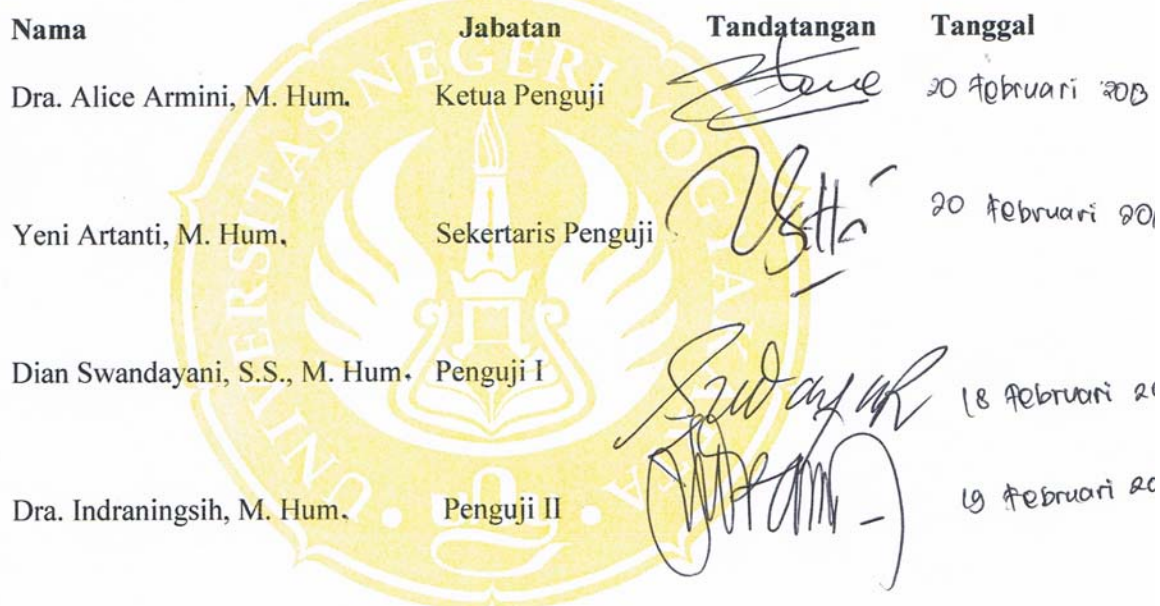 Nama Jabatan Tandatangan Tanggal
Dra. Alice Armini, M. Hum. Ketua Penguji 20 Februari 2013
Yeni Artanti, M. Hum. Sekertaris Penguji 20 Februari
Dian Swandayani, S.S., M. Hum. Penguji I 18 Februari
Dra. Indraningsih, M. Hum. Penguji II 19 Februari
UNIVERSITAS NEGERI YOGYAKARTA